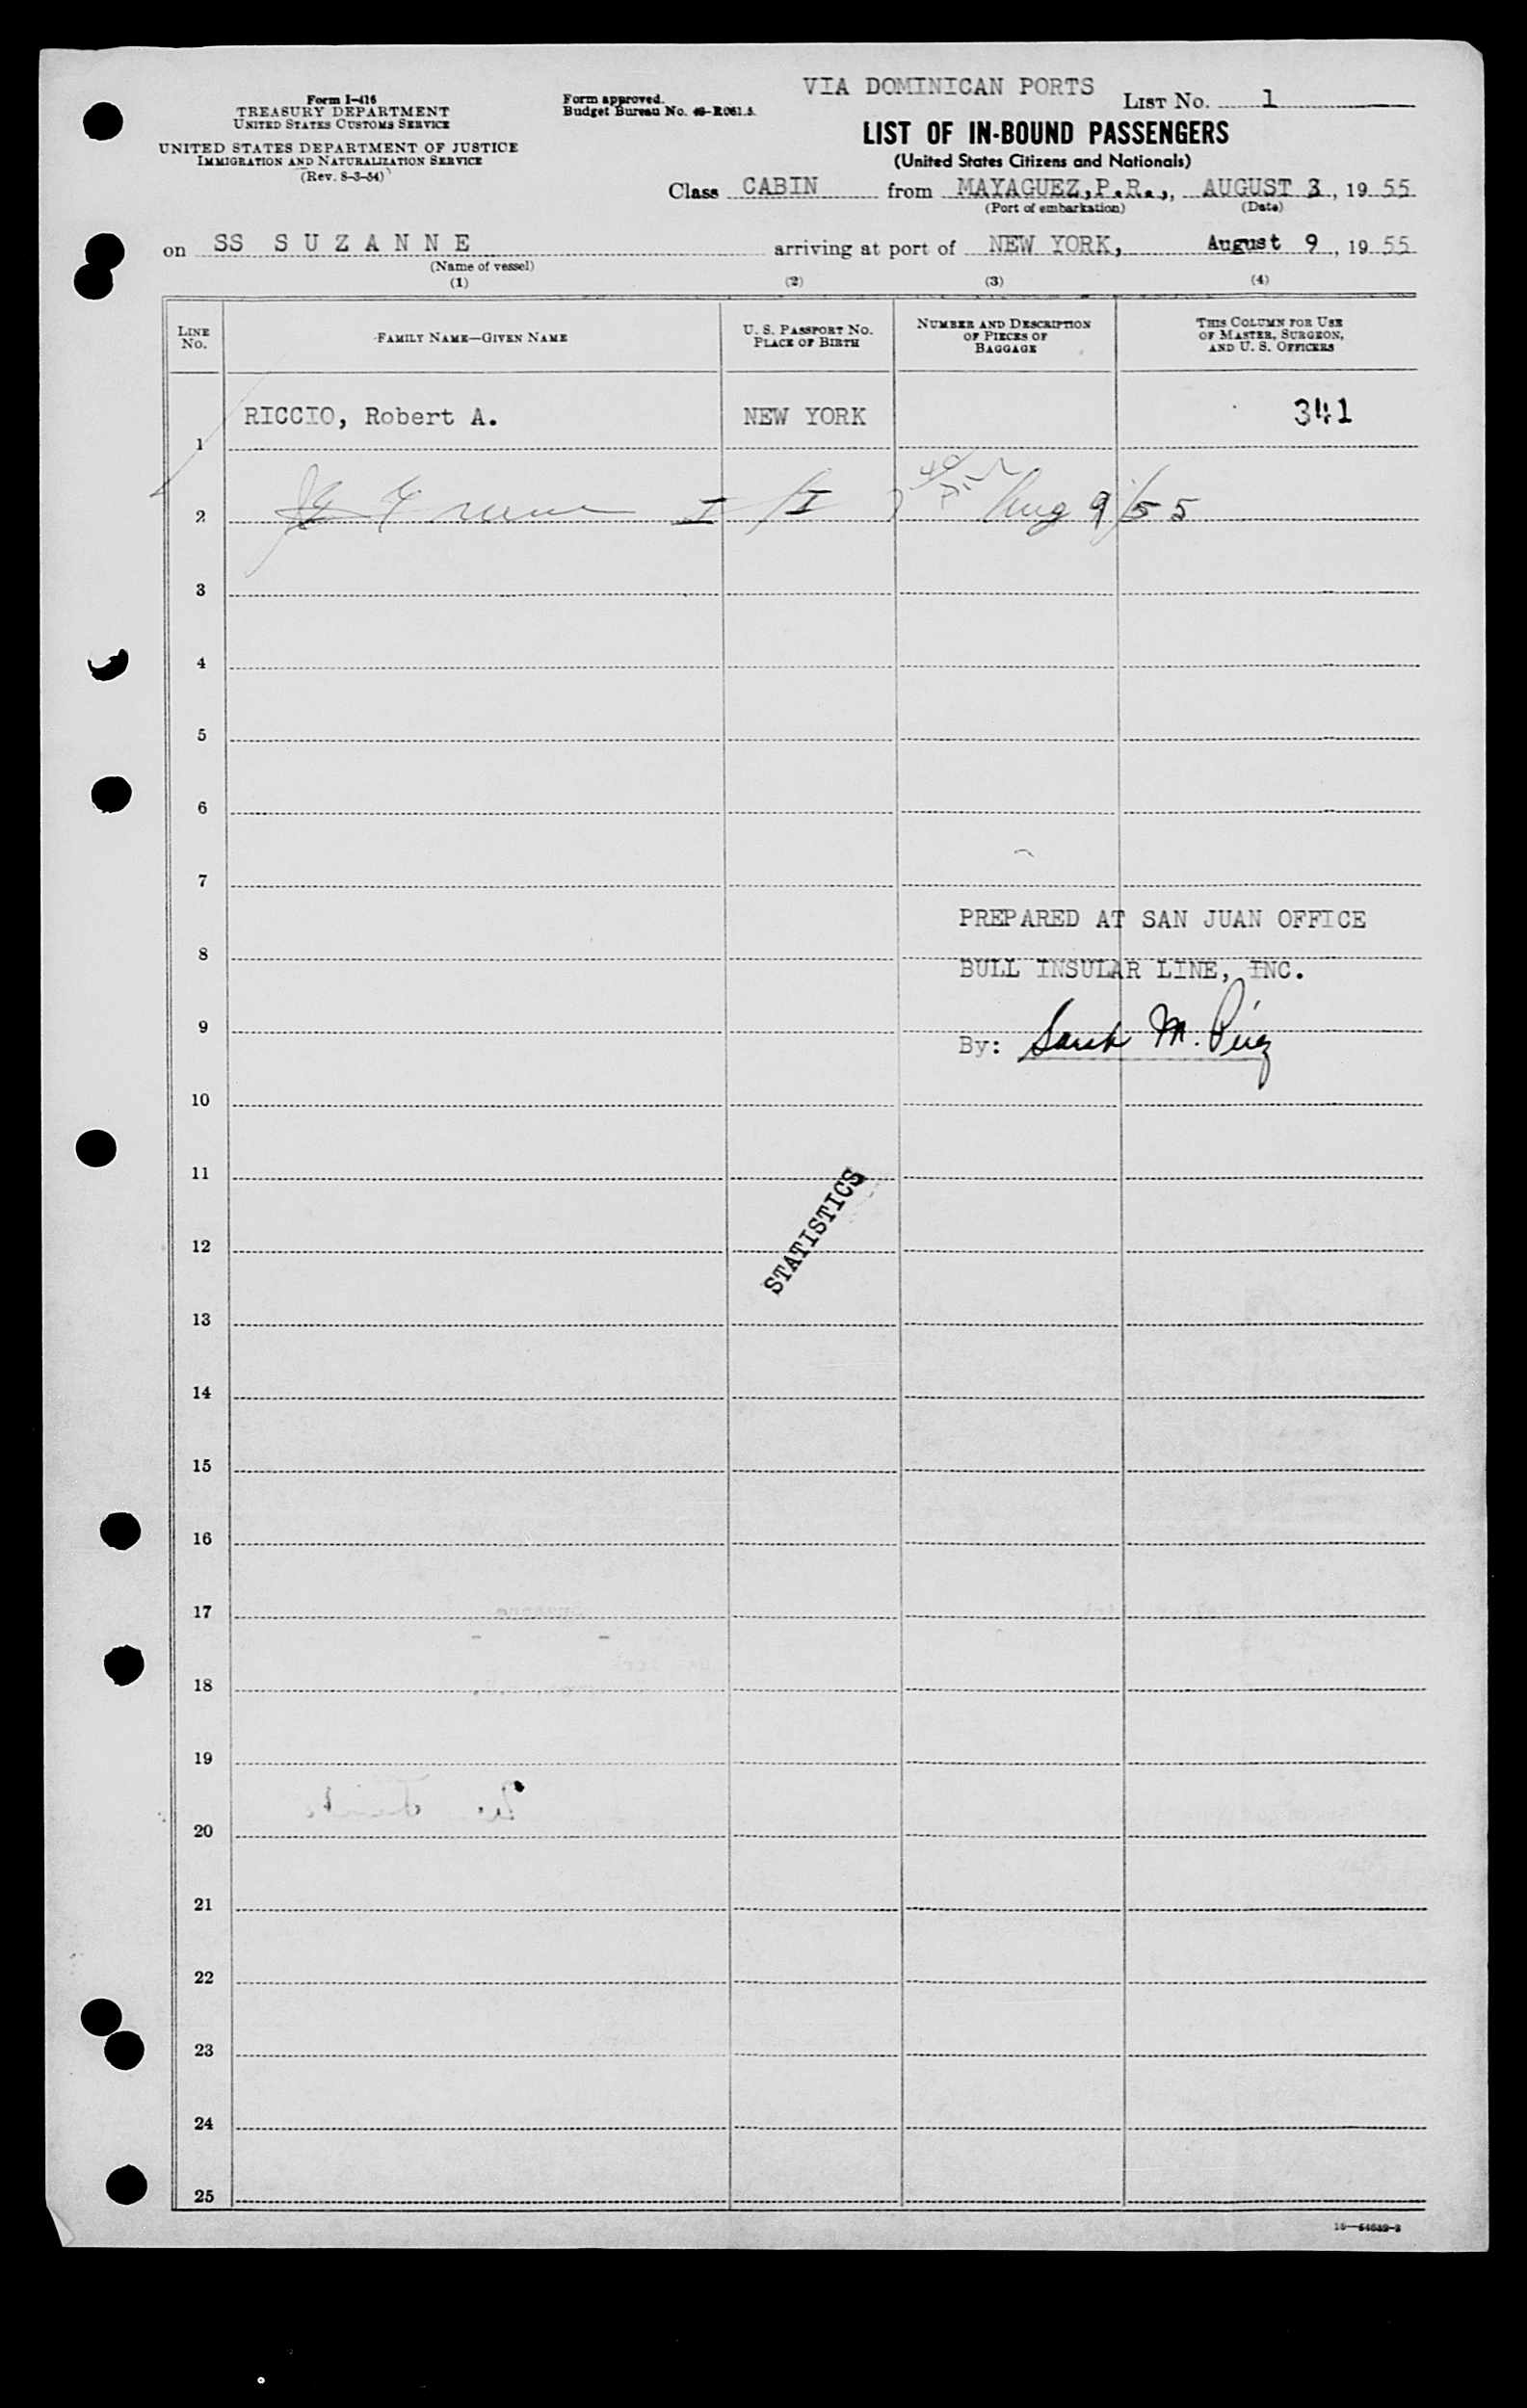 VIA DOMINICAN PORTS
Form I-416
TREASURY DEPARTMENT
UNITED STATES CUSTOMS SERVICE
UNITED STATES DEPARTMENT OF JUSTICE
IMMIGRATION AND NATURALIZATION SERVICE
(Rev. 8-3-54)
Form approved.
Budget Bureau No. 43-R061.5.
LIST NO. 1
LIST OF IN-BOUND PASSENGERS
(United States Citizens and Nationals)
Class CABIN from MAYAGUEZ, P.R., AUGUST 3, 1955
(Port of embarkation) (Date)
on SS SUZANNE arriving at port of NEW YORK, August 9, 1955
(Name of vessel)
(1) (2) (3) (4)
LINE NO.
FAMILY NAME—GIVEN NAME
U. S. PASSPORT NO.
PLACE OF BIRTH
NUMBER AND DESCRIPTION
OF PIECES OF
BAGGAGE
THIS COLUMN FOR USE
OF MASTER, SURGEON,
AND U. S. OFFICERS
RICCIO, Robert A. NEW YORK 341
1
2 I / I Aug 9/55
3
4
5
6
7
PREPARED AT SAN JUAN OFFICE
8
BULL INSULAR LINE, INC.
9
By: Sarah M. Pérez
10
11
STATISTICS
12
13
14
15
16
17
18
19
20
21
22
23
24
25